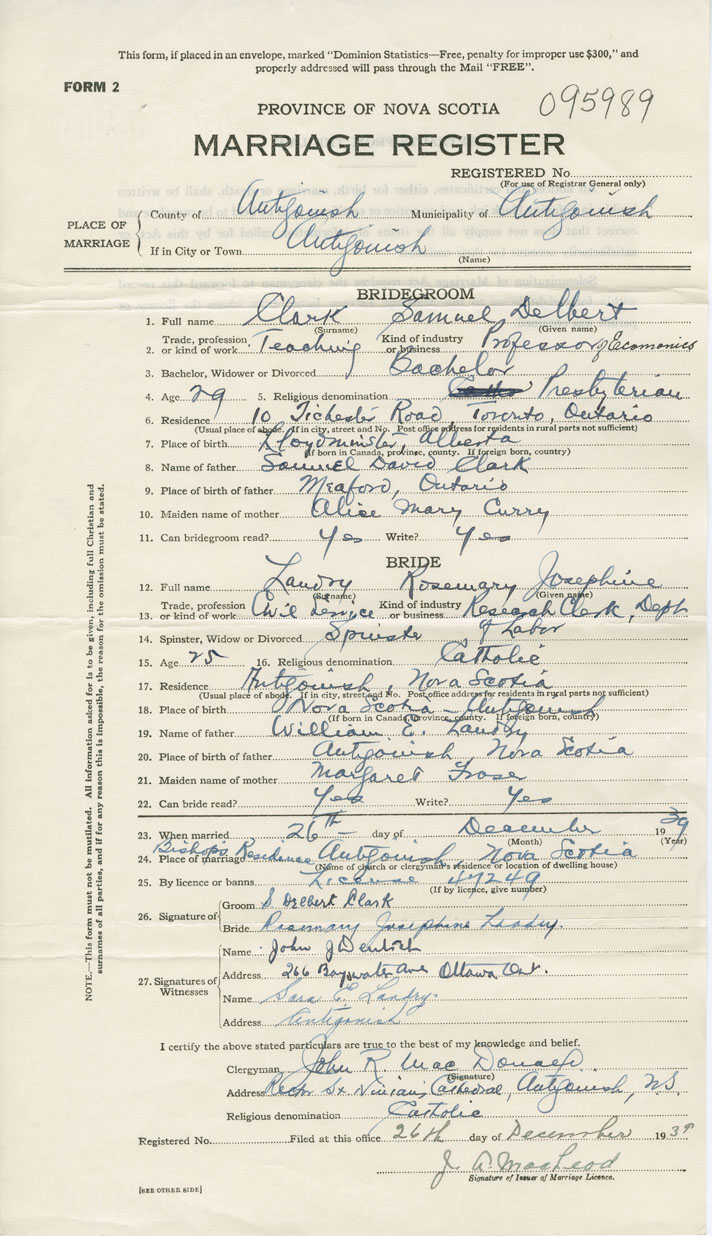 This form, if placed in an envelope, marked "Dominion Statistics—Free, penalty for improper use $300," and
properly addressed will pass through the Mail "FREE".
FORM 2
095989
PROVINCE OF NOVA SCOTIA
MARRIAGE REGISTER
REGISTERED No.
(For use of Registrar General only)
PLACE OF MARRIAGE
County of Antigonish Municipality of Antigonish
If in City or Town Antigonish
(Name)
BRIDEGROOM
1. Full name Clark Samuel Delbert
(Surname) (Given name)
2. Trade, profession or kind of work Teaching Kind of industry or business Professor of Economics
3. Bachelor, Widower or Divorced Bachelor
4. Age 29 5. Religious denomination Presbyterian
6. Residence 10 Tichester Road, Toronto, Ontario
(Usual place of abode. If in city, street and No. Post office address for residents in rural parts not sufficient)
7. Place of birth Lloydminster, Alberta
(If born in Canada, province, county. If foreign born, country)
8. Name of father Samuel David Clark
9. Place of birth of father Meaford, Ontario
10. Maiden name of mother Alice Mary Curry
11. Can bridegroom read? Yes Write? Yes
BRIDE
12. Full name Landry Rosemary Josephine
(Surname) (Given name)
13. Trade, profession or kind of work Civil Service Kind of industry or business Research Clerk, Dept
of Labor
14. Spinster, Widow or Divorced Spinster
15. Age 25 16. Religious denomination Catholic
17. Residence Antigonish, Nova Scotia
(Usual place of abode. If in city, street and No. Post office address for residents in rural parts not sufficient)
18. Place of birth Nova Scotia – Antigonish
(If born in Canada, province, county. If foreign born, country)
19. Name of father William E. Landry
20. Place of birth of father Antigonish, Nova Scotia
21. Maiden name of mother Margaret Fraser
22. Can bride read? Yes Write? Yes
23. When married 26th day of December 1939
(Month) (Year)
24. Place of marriage Bishops Residence Antigonish, Nova Scotia
(Name of church or clergyman's residence or location of dwelling house)
25. By licence or banns License 47249
(If by licence, give number)
26. Signature of
Groom S Delbert Clark
Bride Rosemary Josephine Landry.
27. Signatures of Witnesses
Name John J
Address 266 Bayswater Ave Ottawa Ont.
Name Sara E. Landry.
Address Antigonish
I certify the above stated particulars are true to the best of my knowledge and belief.
Clergyman, John R. MacDonald
(Signature)
Address Rector St Ninian's Cathedral, Antigonish, N.S.
Religious denomination Catholic
Registered No. Filed at this office 26th day of December 1939
J. A. MacLeod
Signature of Issuer of Marriage Licence.
[SEE OTHER SIDE]
NOTE.—This form must not be mutilated. All information asked for is to be given, including full Christian and
surnames of all parties, and if for any reason this is impossible, the reason for the omission must be stated.